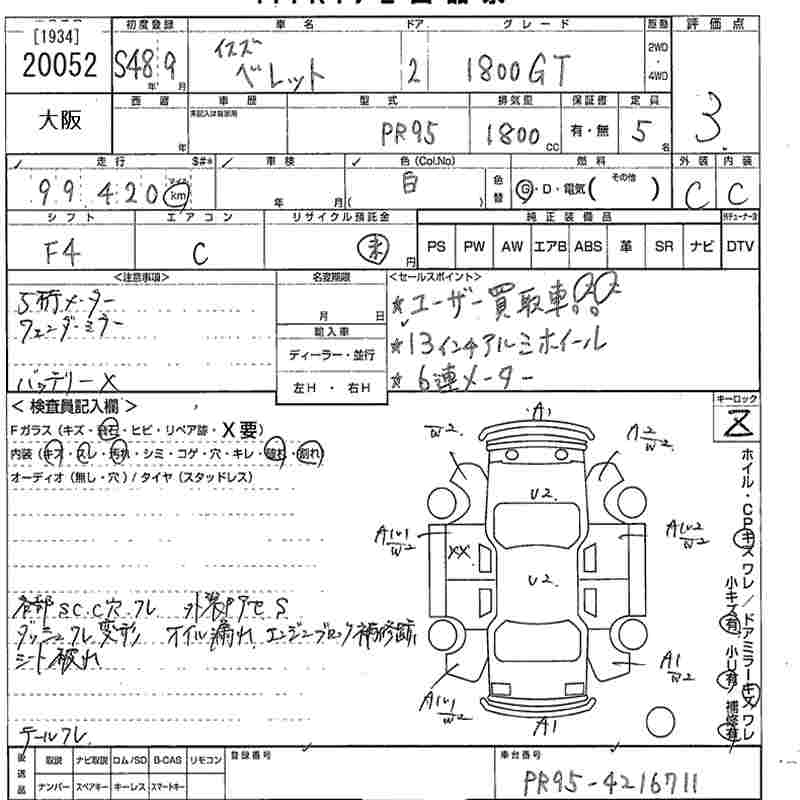 [1934]
20052
初度登録 車名 ドア グレード 駆動 評価点
S48 9 年 月
イスズ
ベレット
2 1800GT
2WD
・
4WD
3
大阪
車歴 型式 排気量 保証書 定員
未記入は自家用
年 PR95 1800 CC 有・無 5 名
走行 S#* 車検 色(Col.No) 燃料 外装 内装
99420 マイル km 年 月 白 ( ) 色替 G・D・電気( その他 ) C C
シフト エアコン リサイクル預託金 純正装備品
F4 C 未 円 PS PW AW エアB ABS 革 SR ナビ DTV
<注意事項> 名変期限 <セールスポイント>
5桁メーター
フェンダーミラー
バッテリーX
月 日
輸入車
ディーラー・並行
左H・右H
☆ユーザー買取車!!
☆13インチアルミホイール
☆6連メーター
<検査員記入欄>
Fガラス(キズ・飛石・ヒビ・リペア跡・X要)
内装(キズ・スレ・汚れ・シミ・コゲ・穴・キレ・破れ・割れ)
オーディオ(無し・穴)/タイヤ(スタッドレス)
キーロック
Z
A1
W2
A2/W2
U2
A1U1/W2
XX
A1U2/W2
U2
A1/W2
A1U1/W2
A1
ホイル・CPキズワレ/ドアミラーキズワレ
小キズ有 小U有 補修有
各部SC.C穴フレ 外装PタセS
ダッシュフレ変形 オイル漏れ エンジンブロック補修跡
シート破れ
テールフレ
後送品 取説 ナビ取説 ロム/SD B-CAS リモコン
ナンバー スペアキー キーレス スマートキー
登録番号
車台番号
PR95-4216711